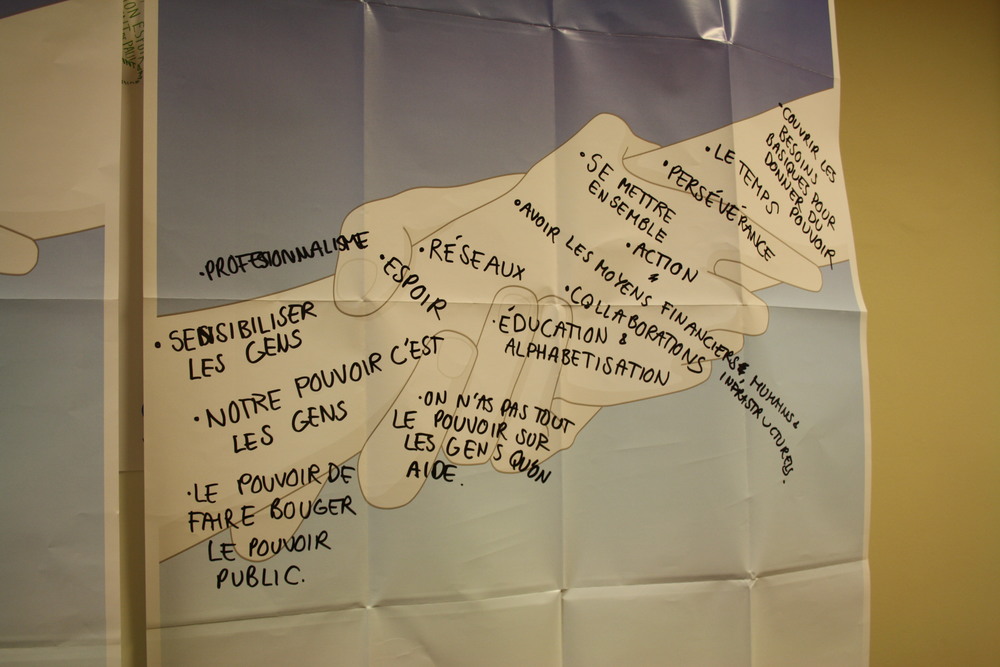 • PROFESIONNALISME
• SENSIBILISER
LES GENS
• NOTRE POUVOIR C'EST
LES GENS
• LE POUVOIR DE
FAIRE BOUGER
LE POUVOIR
PUBLIC.
• ESPOIR
• RÉSEAUX
• ÉDUCATION &
ALPHABETISATION
• ON N'AS PAS TOUT
LE POUVOIR SUR
LES GENS QU'ON
AIDE.
• SE METTRE
ENSEMBLE
• AVOIR LES MOYENS FINANCIERS & HUMAINS &
INFRASTRUCTURELS.
• ACTION
• COLLABORATIONS
• PERSÉVÉRANCE
• LE TEMPS
• COUVRIR LES
BESOINS
BASIQUES POUR
DONNER DU
POUVOIR